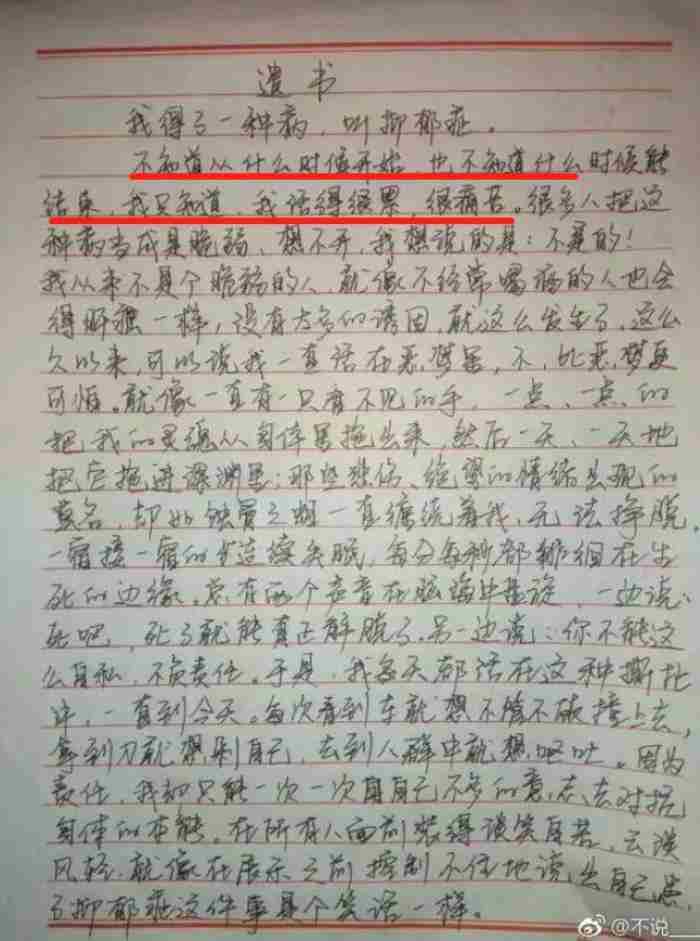 遗书
我得了一种病，叫抑郁症。
不知道从什么时候开始，也不知道什么时候能
结束，我只知道，我活得很累，很痛苦。很多人把这
种病当成是脆弱、想不开，我想说的是：不是的！
我从来不是个脆弱的人，就像不经常喝酒的人也会
得肝癌一样，没有太多的诱因，就这么发生了，这么
久以来，可以说我一直活在恶梦里，不，比恶梦更
可怕。就像一直有一只看不见的手，一点、一点的
把我的灵魂从身体里拖出来，然后一天、一天地
把它拖进深渊里；那些悲伤、绝望的情绪出现的
莫名，却如蚀骨之蛆一直缠绕着我，无法挣脱。
一宿接一宿的连续失眠，每分每秒都徘徊在生
死的边缘。总有两个声音在脑海中盘旋，一边说：
死吧，死了就能真正解脱了。另一边说：你不能这
么自私，不负责任。于是，我每天都活在这种撕扯
中，一直到今天。每次看到车就想不管不顾撞上去，
拿到刀就想剁自己，去到人群中就想呕吐。因为
责任，我却只能一次一次用自己不多的意志去对抗
身体的本能。在所有人面前装得谈笑自若，云淡
风轻，就像在展示之前控制不住地说出自己患
了抑郁症这件事是个笑话一样。
@不说